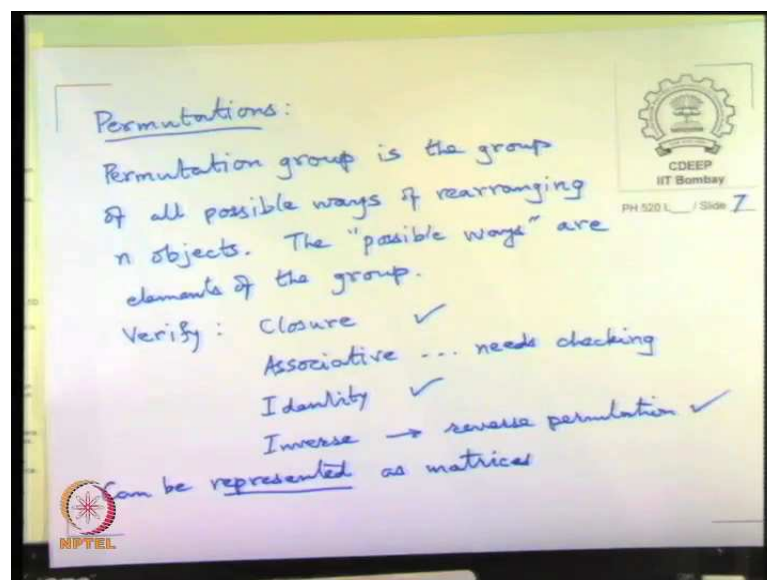 Permutations:
Permutation group is the group
of all possible ways of rearranging
n objects. The "possible ways" are
elements of the group.
Verify : Closure ✓
Associative ... needs checking
Identity ✓
Inverse → reverse permutation ✓
Can be represented as matrices
CDEEP
IIT Bombay
PH 520 L / Slide 7
NPTEL